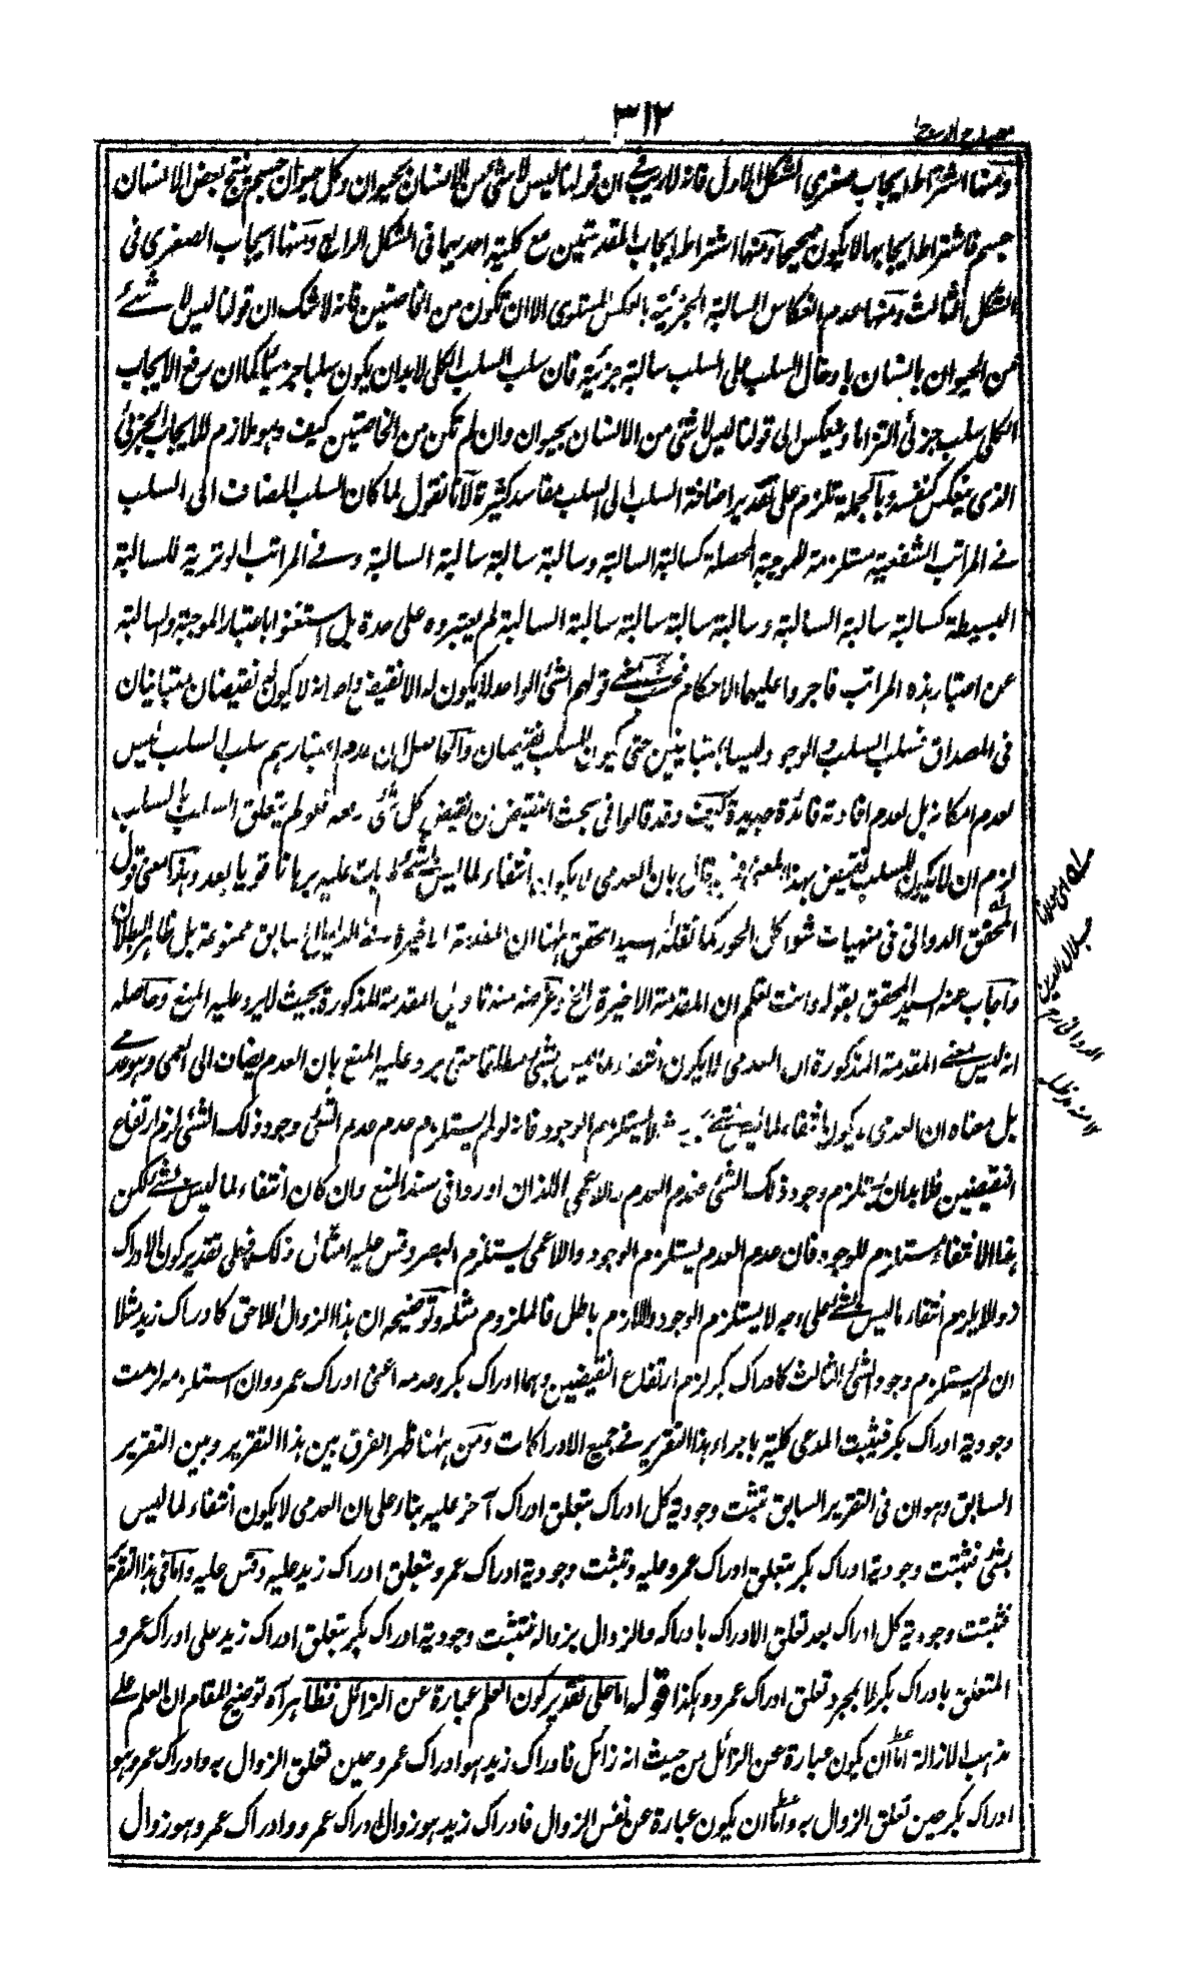 ٣١٢
مصباح الدجى
ومنها اشتراط ايجاب صغرى الشكل الاول فانه لاريب في ان قولنا ليس لا شئ من الانسان بحيوان وكل حيوان جسم ينتج بعض الانسان
جسم فاشتراط ايجابها لا يكون صحيحا ومنها اشتراط ايجاب المقدمتين مع كلية احديهما فى الشكل الرابع ومنها ايجاب الصغرى فى
الشكل الثالث ومنها عدم انعكاس السالبة الجزئية بالعكس المستوى الا ان تكون من الخاصتين فانه لاشك ان قولنا ليس لا شئ
من الحيوان بانسان بادخال السلب على السلب سالبة جزئية فان سلب السلب الكلى لابد ان يكون سلبا جزئيا كما ان رفع الايجاب
الكلى سلب جزئى التزاما وينعكس الى قولنا ليس لا شئ من الانسان بحيوان وان لم تكن من الخاصتين كيف وهو ملازم للايجاب الجزئى
الذى ينعكس كنفسه وبالجملة تلزم على تقدير اضافة السلب الى السلب مفاسد كثيرة لانا نقول لما كان السلب المضاف الى السلب
في المراتب الشفعية مستلزمة للموجبة المحصلة كسالبة السالبة وسالبة سالبة سالبة السالبة وفى المراتب الوترية للسالبة
البسيطة كسالبة سالبة السالبة وسالبة سالبة سالبة سالبة السالبة لم يعتبروه على حدة بل استغنوا باعتبار الموجبة والسالبة
عن اعتبار هذه المراتب فاجروا عليها الاحكام فحسب فمعنى قولهم الشئ الواحد لا يكون له الا نقيض واحد انه لا يكون له نقيضان متباينان
فى المصداق فسلب السلب والوجود ليسا بمتباينين حتى يكون للسلب نقيضان والحاصل ان عدم اعتبارهم سلب السلب ليس
لعدم امكانه بل لعدم افادته فائدة جديدة كيف وقد قالوا فى بحث النقيض ان نقيض كل شئ رفعه فلو لم يتعلق السلب بالسلب
لزم ان لا يكون للسلب نقيض بهذا المعنى قال بان العدمى لا يكون انتفاء لما ليس بشئ لم يات عليه برهانا قويا بعد وهذا معنى قول
المحقق الدوانى فى منهيات شواكل الحور كما نقله السيد المحقق ههنا ان المقدمة الاخيرة من الدليل السابق ممنوعة بل ظاهر البطلان
واجاب عنه السيد المحقق بقوله وانت تعلم ان المقدمة الاخيرة الخ وغرضه منه تاويل المقدمة المذكورة بحيث لا يرد عليه المنع وحاصله
انه ليس معنى المقدمة المذكورة ان العدمى لا يكون انتفاء لما ليس بشئ مطلقا حتى يرد عليه المنع بان العدم يضاف الى العمى وهو عدمى
بل معناه ان العدمى لا يكون انتفاء لما ليس بشئ بحيث لا يستلزم الوجود فانه لو لم يستلزم عدم عدم الشئ وجود ذلك الشئ لزم ارتفاع
النقيضين فلابد ان يستلزم وجود ذلك الشئ فعدم العدم والاعمى اللذان اوردا فى سند المنع وان كان انتفاء لما ليس بشئ لكن
هذا الانتفاء مستلزم للوجود فان عدم العدم يستلزم الوجود والاعمى يستلزم البصر وقس عليه امثال ذلك فعلى تقدير كون الادراك
زوالا يلزم انتفاء ما ليس بشئ على وجه لا يستلزم الوجود واللازم باطل فالملزوم مثله وتوضيحه ان هذا الزوال اللاحق كادراك زيد مثلا
ان لم يستلزم وجود الشئ الثالث كادراك بكر لزم ارتفاع النقيضين وهما ادراك بكر وعدمه اعنى ادراك عمرو وان استلزمه لزمت
وجودية ادراك بكر فيثبت المدعى كلية باجراء هذا التقرير فى جميع الادراكات ومن ههنا ظهر الفرق بين هذا التقرير وبين التقرير
السابق وهو ان فى التقرير السابق تثبت وجودية كل ادراك بتعلق ادراك آخر عليه بناء على ان العدمى لا يكون انتفاء لما ليس
بشئ فتثبت وجودية ادراك بكر بتعلق ادراك عمرو عليه وتثبت وجودية ادراك عمرو بتعلق ادراك زيد عليه وقس عليه واما فى هذا التقرير
فتثبت وجودية كل ادراك بعد تعلق الادراك بادراكه والزوال بزواله فتثبت وجودية ادراك بكر بتعلق ادراك زيد على ادراك عمرو
المتعلق بادراك بكر لا بمجرد تعلق ادراك عمرو وهكذا قوله اما على تقدير كون العلم عبارة عن الزائل فظاهر آه توضيح المقام ان العلم على
مذهب الازالة اما ان يكون عبارة عن الزائل من حيث انه زائل فادراك زيد هو ادراك عمرو حين تعلق الزوال به وادراك عمرو هو
ادراك بكر حين تعلق الزوال به واما ان يكون عبارة عن نفس الزوال فادراك زيد هو زوال ادراك عمرو وادراك عمرو هو زوال
له اى مولانا
جلال الدين
الدوانى رح
١٢ منه مد ظله